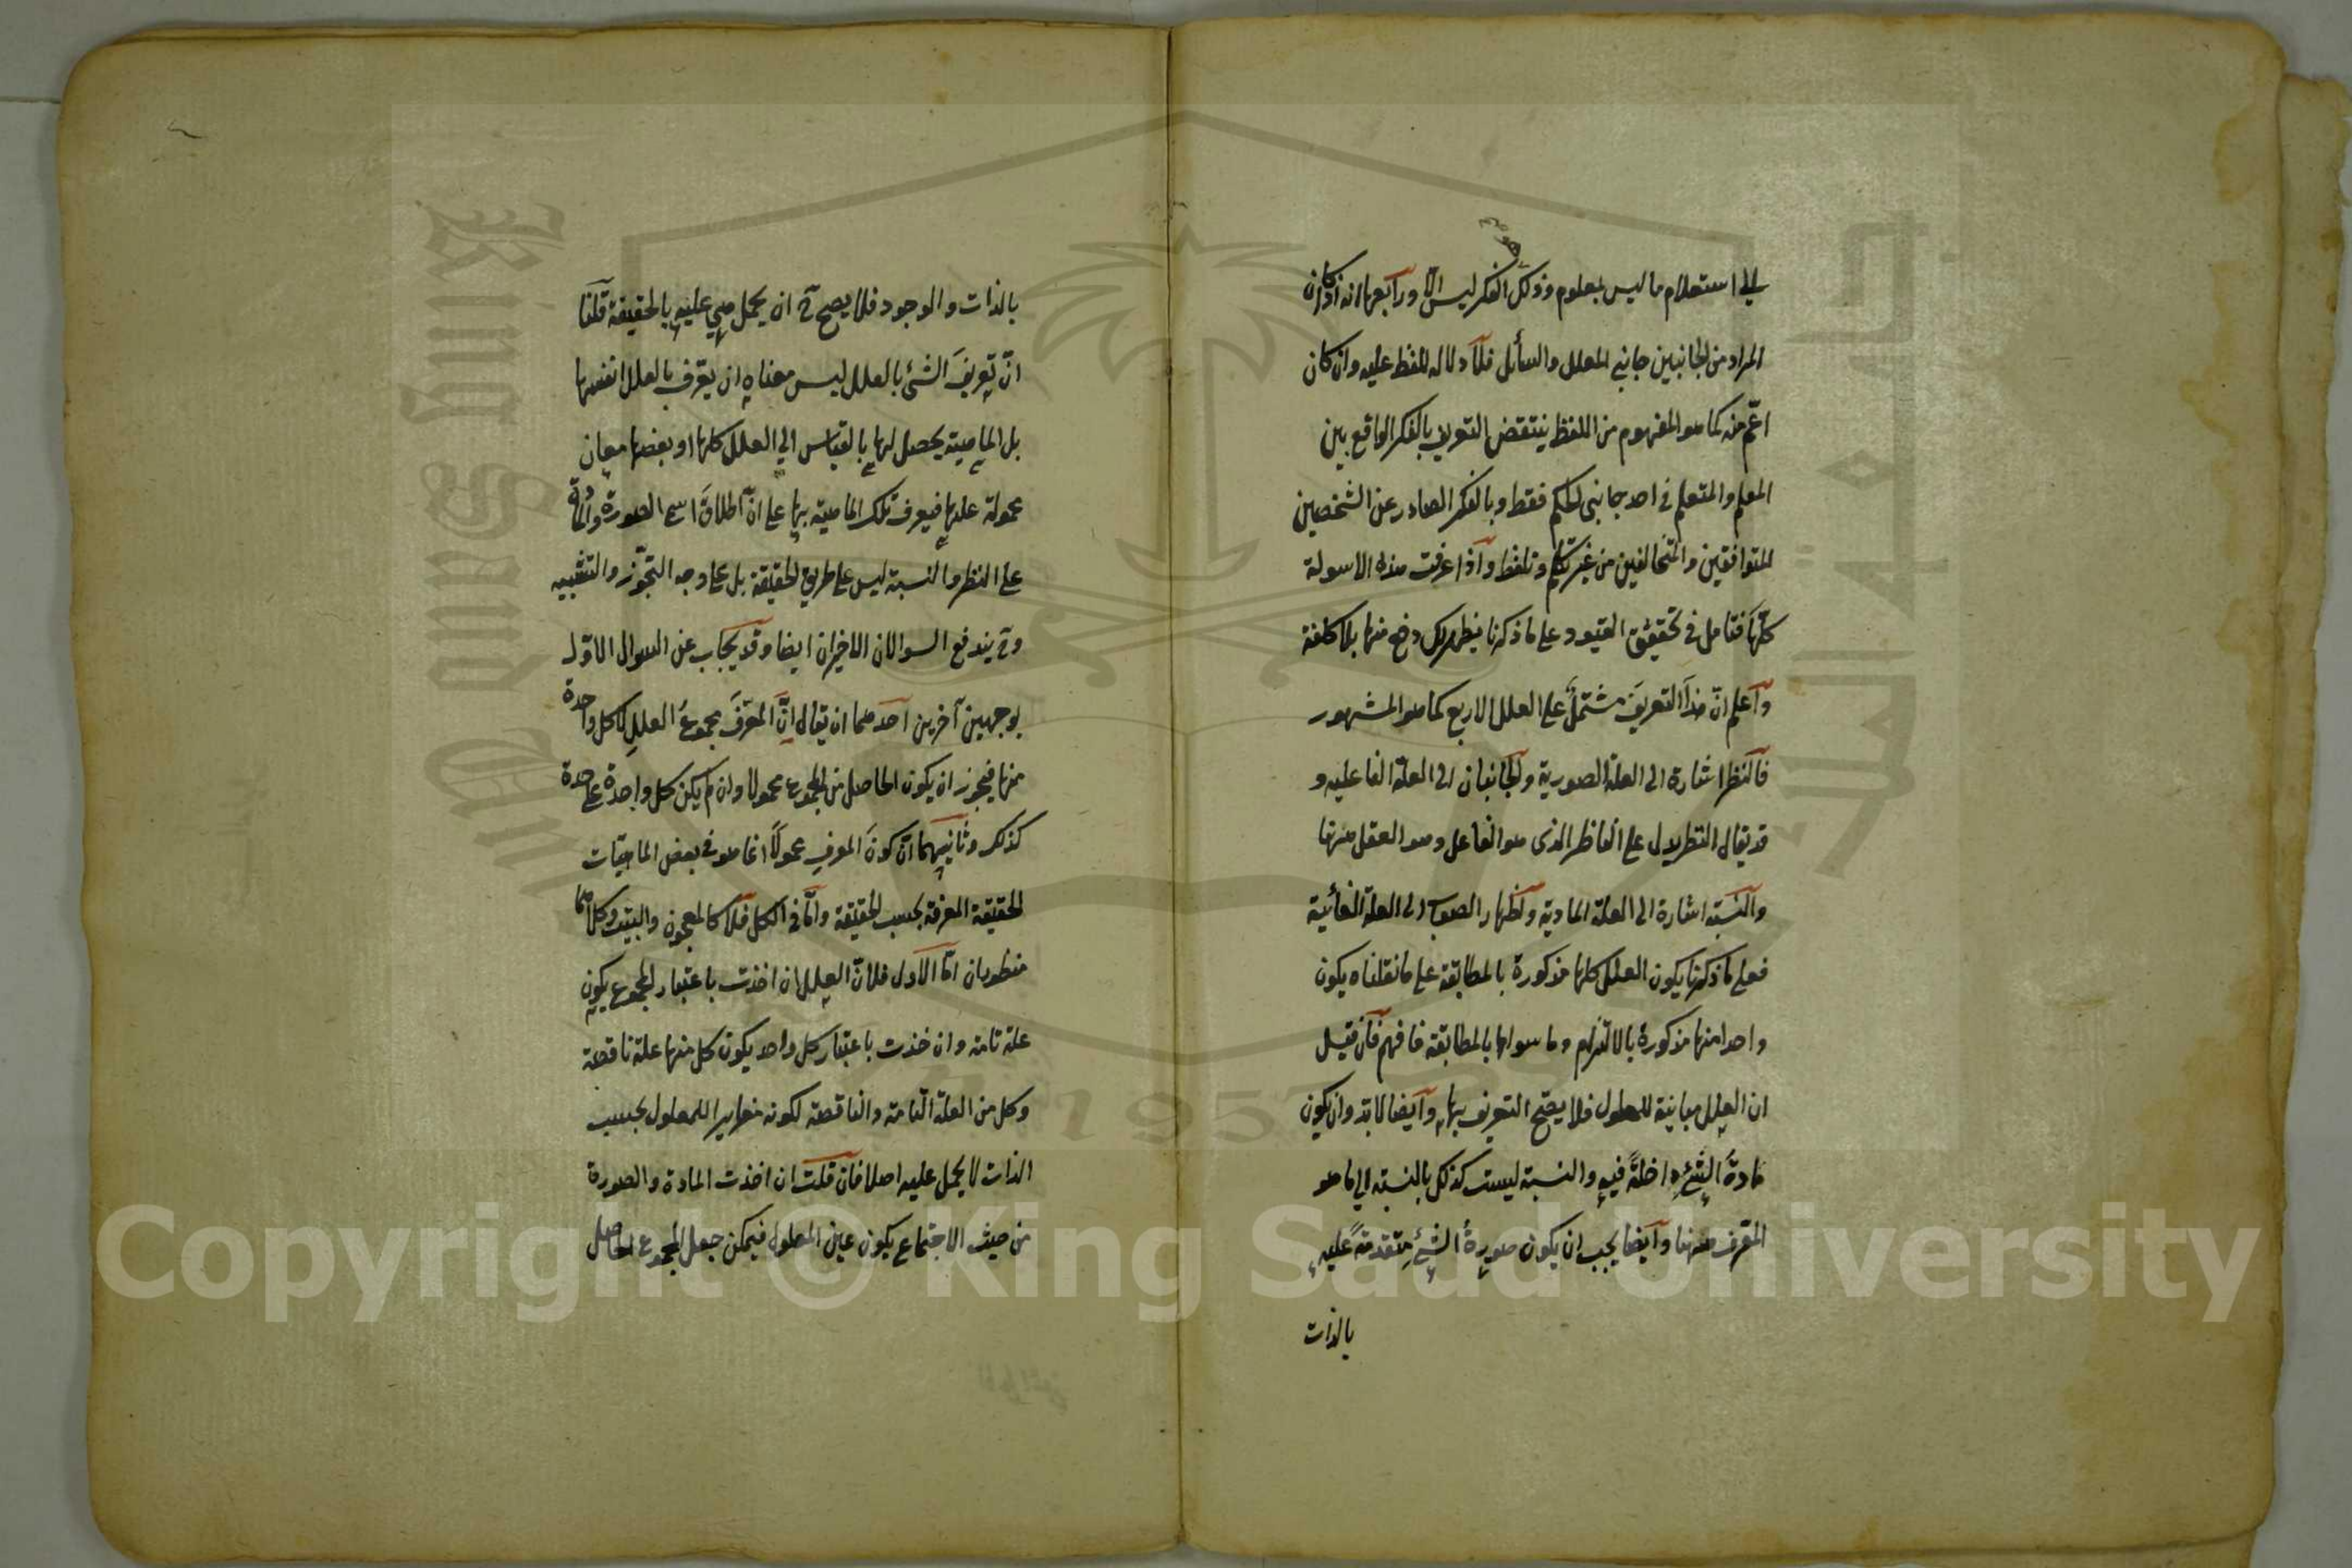 الى استعلام ما ليس بمعلوم وذلك الفكر ليس الا ورابعها انه اذا كان
المراد من الجانبين جانبي المعلل والسائل فلا دلالة للفظ عليه وان كان
اعم منه كما هو المفهوم من اللفظ ينتقض التعريف بالفكر الواقع بين
المعلم والمتعلم في احد جانبي الحكم فقط وبالفكر الصادر عن الشخصين
المتوافقين والمتخالفين من غير تكلم وتلفظ واذا عرفت هذه الاسولة
كلها فتامل في تحقيق القيود على ما ذكرنا يظهر لك دفعها بلا كلفة
واعلم ان هذا التعريف مشتمل على العلل الاربع كما هو المشهور
فالنظر اشارة الى العلة الصورية والجانبان الى العلة الفاعليه و
قد يقال النظر يدل على الناظر الذى هو الفاعل وهو العقل منها
والنسبة اشارة الى العلة المادية واظهار الصواب الى العلة الغائية
فعلى ما ذكرنا يكون العلل كلها مذكورة بالمطابقة على ما نقلناه يكون
واحدا منها مذكورة بالالتزام وما سواها بالمطابقة فافهم فان قيل
ان العلل مباينة للمعلول فلا يصح التعريف بها وايضا لابد وان يكون
مادة الشئ داخلة فيه والنسبة ليست كذلك بالنسبة الى ما هو
المعرف ههنا وايضا يجب ان يكون صورة الشئ متقدمة عليه
بالذات
بالذات والوجود فلا يصح ح ان يحمل هي عليه بالحقيقة قلنا
ان تعريف الشئ بالعلل ليس معناه ان يعرف بالعلل انفسها
بل الماهية يحصل لها بالقياس الى العلل كلها او بعضها معان
محمولة عليها فيعرف تلك الماهية بها على ان اطلاق اسم الصورة والمادة
على النظر والنسبة ليس على طريق الحقيقة بل على وجه التجوز والتشبيه
وح يندفع السوالان الاخيران ايضا وقد يجاب عن السوال الاول
بوجهين آخرين احدهما ان يقال ان المعرف مجموع العلل لا كل واحدة
منها فيجوز ان يكون الحاصل من المجموع محمولا وان لم يكن كل واحدة على حدة
كذلك وثانيهما ان كون المعرف محمولا انما هو في بعض الماهيات
الحقيقة المعرفة بحسب الحقيقة واما في الكل فلا كالمعجون والبيت وكلاهما
منظوران اما الاول فلان العلل ان اخذت باعتبار المجموع يكون
علة تامة وان خذت باعتبار كل واحد يكون كل منها علة ناقصة
وكل من العلة التامة والناقصة لكونه مغايرا للمعلول بحسب
الذات لا يحمل عليه اصلا فان قلت ان اخذت المادة والصورة
من حيث الاجتماع يكون عين المعلول فيمكن جعل المجموع الحاصل
Copyright © King Saud University